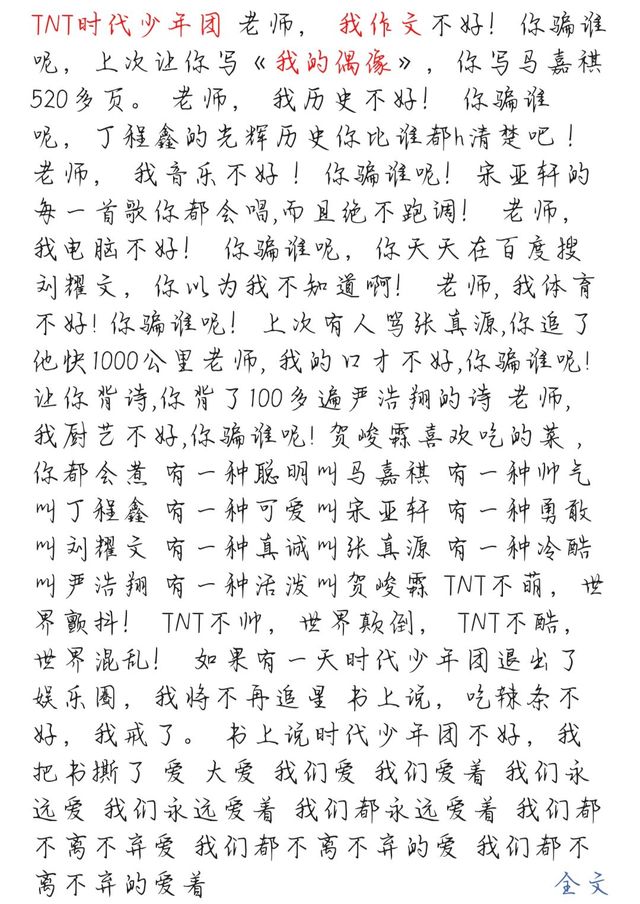 TNT时代少年团 老师， 我作文不好！你骗谁
呢，上次让你写《我的偶像》，你写马嘉祺
520多页。 老师， 我历史不好！ 你骗谁
呢，丁程鑫的光辉历史你比谁都h清楚吧！
老师， 我音乐不好！你骗谁呢！ 宋亚轩的
每一首歌你都会唱,而且绝不跑调！ 老师，
我电脑不好！ 你骗谁呢，你天天在百度搜
刘耀文，你以为我不知道啊！ 老师,我体育
不好！你骗谁呢！ 上次有人骂张真源,你追了
他快1000公里老师, 我的口才不好,你骗谁呢!
让你背诗,你背了100多遍严浩翔的诗 老师,
我厨艺不好,你骗谁呢! 贺峻霖喜欢吃的菜，
你都会煮 有一种聪明叫马嘉祺 有一种帅气
叫丁程鑫 有一种可爱叫宋亚轩 有一种勇敢
叫刘耀文 有一种真诚叫张真源 有一种冷酷
叫严浩翔 有一种活泼叫贺峻霖 TNT不萌，世
界颤抖！ TNT不帅，世界颠倒， TNT不酷，
世界混乱！ 如果有一天时代少年团退出了
娱乐圈，我将不再追星 书上说，吃辣条不
好，我戒了。 书上说时代少年团不好，我
把书撕了 爱 大爱 我们爱 我们爱着 我们永
远爱 我们永远爱着 我们都永远爱着 我们都
不离不弃爱 我们都不离不弃的爱 我们都不
离不弃的爱着 全文